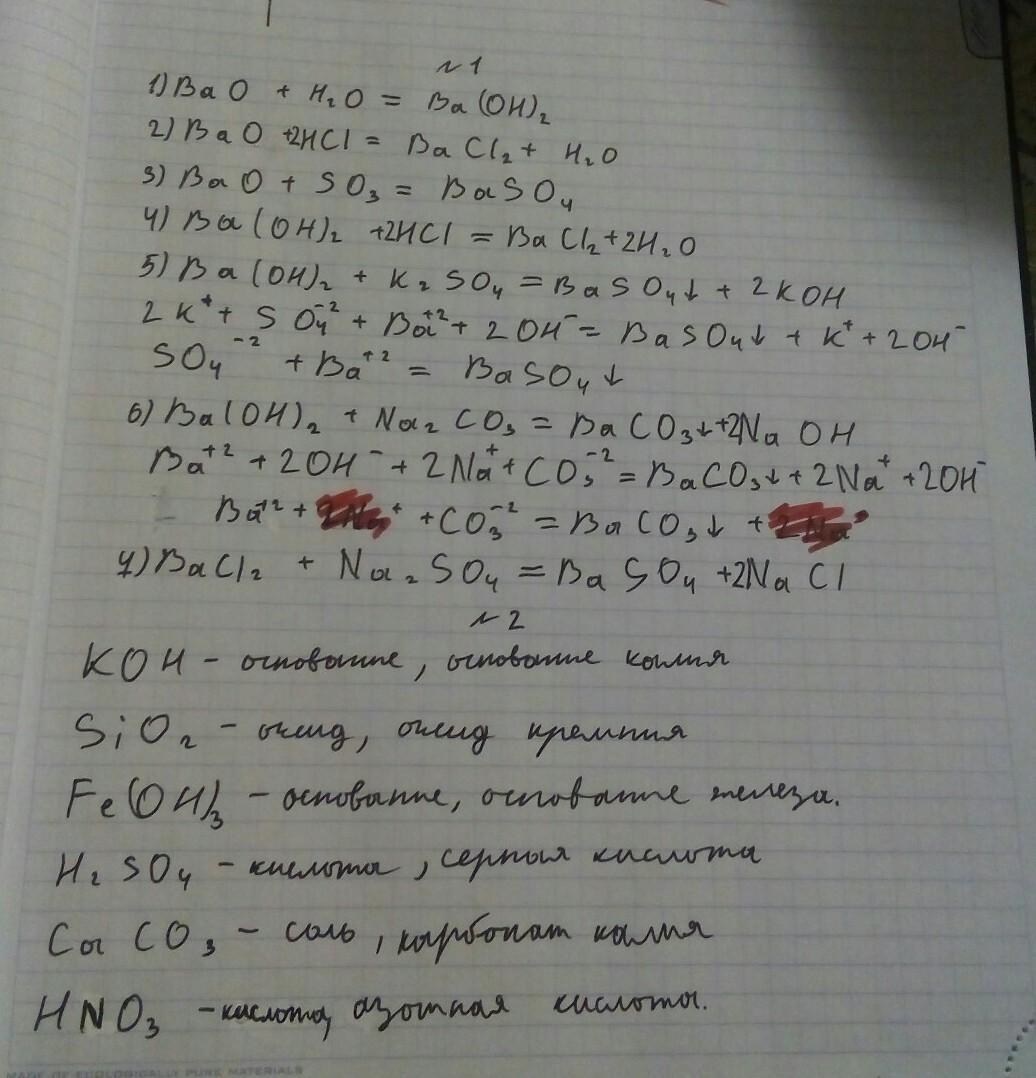 №1
1) BaO + H₂O = Ba(OH)₂
2) BaO +2HCl = BaCl₂ + H₂O
3) BaO + SO₃ = BaSO₄
4) Ba(OH)₂ +2HCl = BaCl₂+2H₂O
5) Ba(OH)₂ + K₂SO₄ = BaSO₄↓ + 2KOH
2K⁺ + SO₄⁻² + Ba⁺² + 2OH⁻ = BaSO₄↓ + K⁺ + 2OH⁻
SO₄⁻² + Ba⁺² = BaSO₄↓
6) Ba(OH)₂ + Na₂CO₃ = BaCO₃↓+2NaOH
Ba⁺² + 2OH⁻ + 2Na⁺ + CO₃⁻² = BaCO₃↓ + 2Na⁺ + 2OH⁻
Ba⁺² + + CO₃⁻² = BaCO₃↓ +
7) BaCl₂ + Na₂SO₄ = BaSO₄ +2NaCl
№2
KOH – основание, основание калия
SiO₂ – оксид, оксид кремния
Fe(OH)₃ – основание, основание железа.
H₂SO₄ – кислота, серная кислота
CaCO₃ – соль, карбонат калия
HNO₃ – кислота, азотная кислота.
MADE OF ECOLOGICALLY PURE MATERIALS